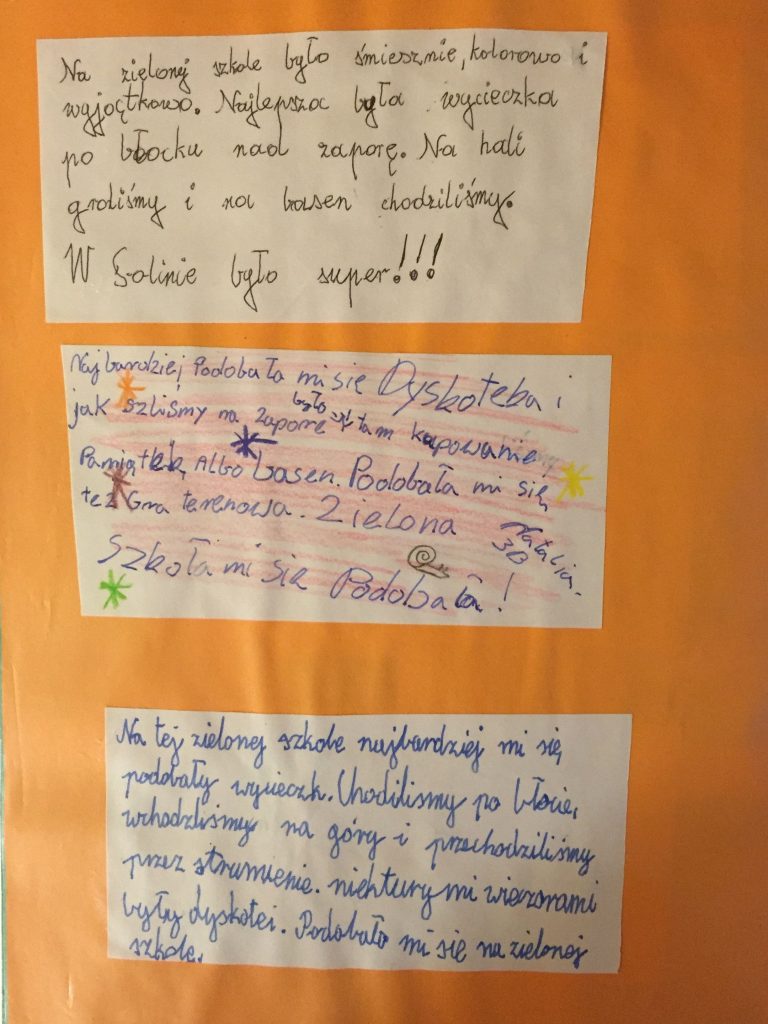 Na zielonej szkole było śmiesznie, kolorowo i
wyjątkowo. Najlepsza była wycieczka
po błocku nad zaporę. Na hali
graliśmy i na basen chodziliśmy.
W Solinie było super!!!
Najbardziej Podobała mi się Dyskoteba i
jak szliśmy na zaporę było tam kupowanie
Pamiątek Albo basen. Podobała mi się
też Gra terenowa. Zielona
Szkoła mi się Podobała!
Natalia.
3B
Na tej zielonej szkole najbardziej mi się
podobały wycieczk. Chodilismy po błocie,
wchodzliśmy na góry i przechodziliśmy
przez strumienie. niektury mi wieczorami
były dyskotei. Podobało mi się na zielonej
szkole.